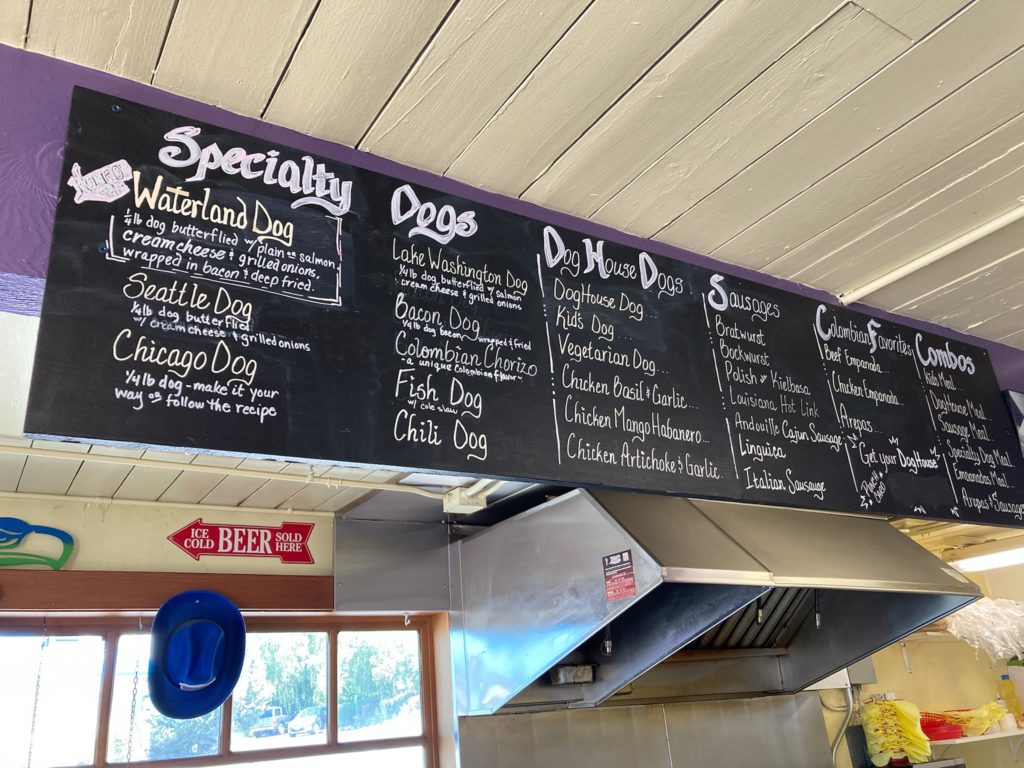 Specialty Dogs
Waterland Dog
1/4 lb dog butterflied w/ plain or salmon
creamcheese & grilled onions,
wrapped in bacon & deep fried.
Seattle Dog
1/4 lb dog butterflied
w/ creamcheese & grilled onions
Chicago Dog
1/4 lb dog - make it your
way or follow the recipe
Lake Washington Dog
1/4 lb dog butterflied w/ salmon
cream cheese & grilled onions
Bacon Dog
1/4 lb dog bacon wrapped & fried
Colombian Chorizo
- a unique colombian flavor -
Fish Dog
w/ cole slaw
Chili Dog
Dog House Dogs
DogHouse Dog...
Kid's Dog...
Vegetarian Dog...
Chicken Basil & Garlic...
Chicken Mango Habanero...
Chicken Artichoke & Garlic
Sausages
Bratwurst
Bockwurst
Polish or Kielbasa
Louisiana Hot Link
Andouille Cajun Sausage
Linguica
Italian Sausauge
Colombian Favorites
Beef Empanada...
Chicken Empanada...
Arepas...
Get your DogHouse
Combos
Kids Meal...
DogHouse Meal...
Sausage Meal...
Specialty Dog Meal...
Empanatas Meal...
Arepas & Sausage
ICE COLD BEER SOLD HERE